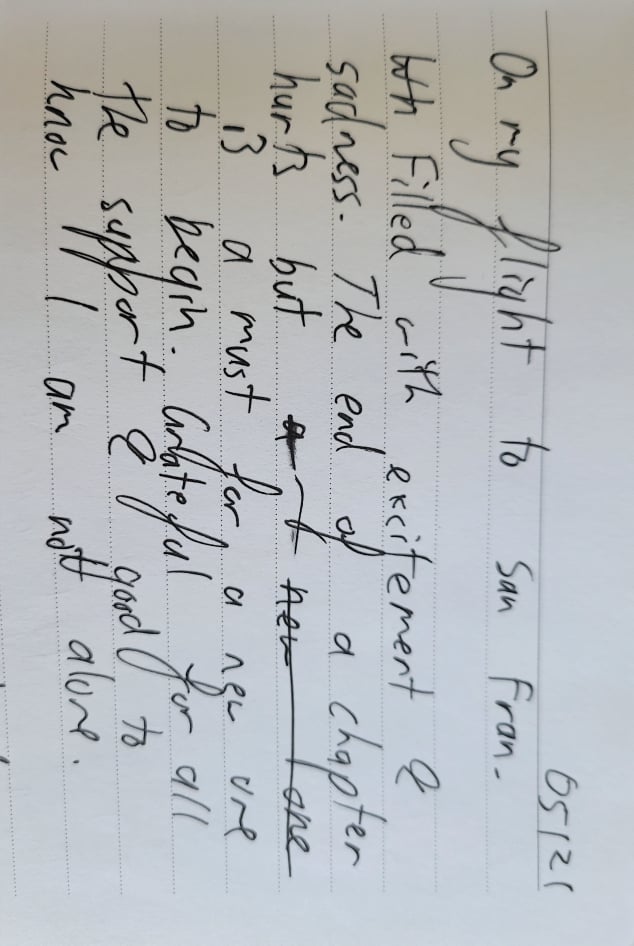 05121
On my flight to San Fran.
Filled with excitement &
sadness. The end of a chapter
hurts but new one
is a must for a new one
to begin. Grateful for all
the support & good to
know I am not alone.